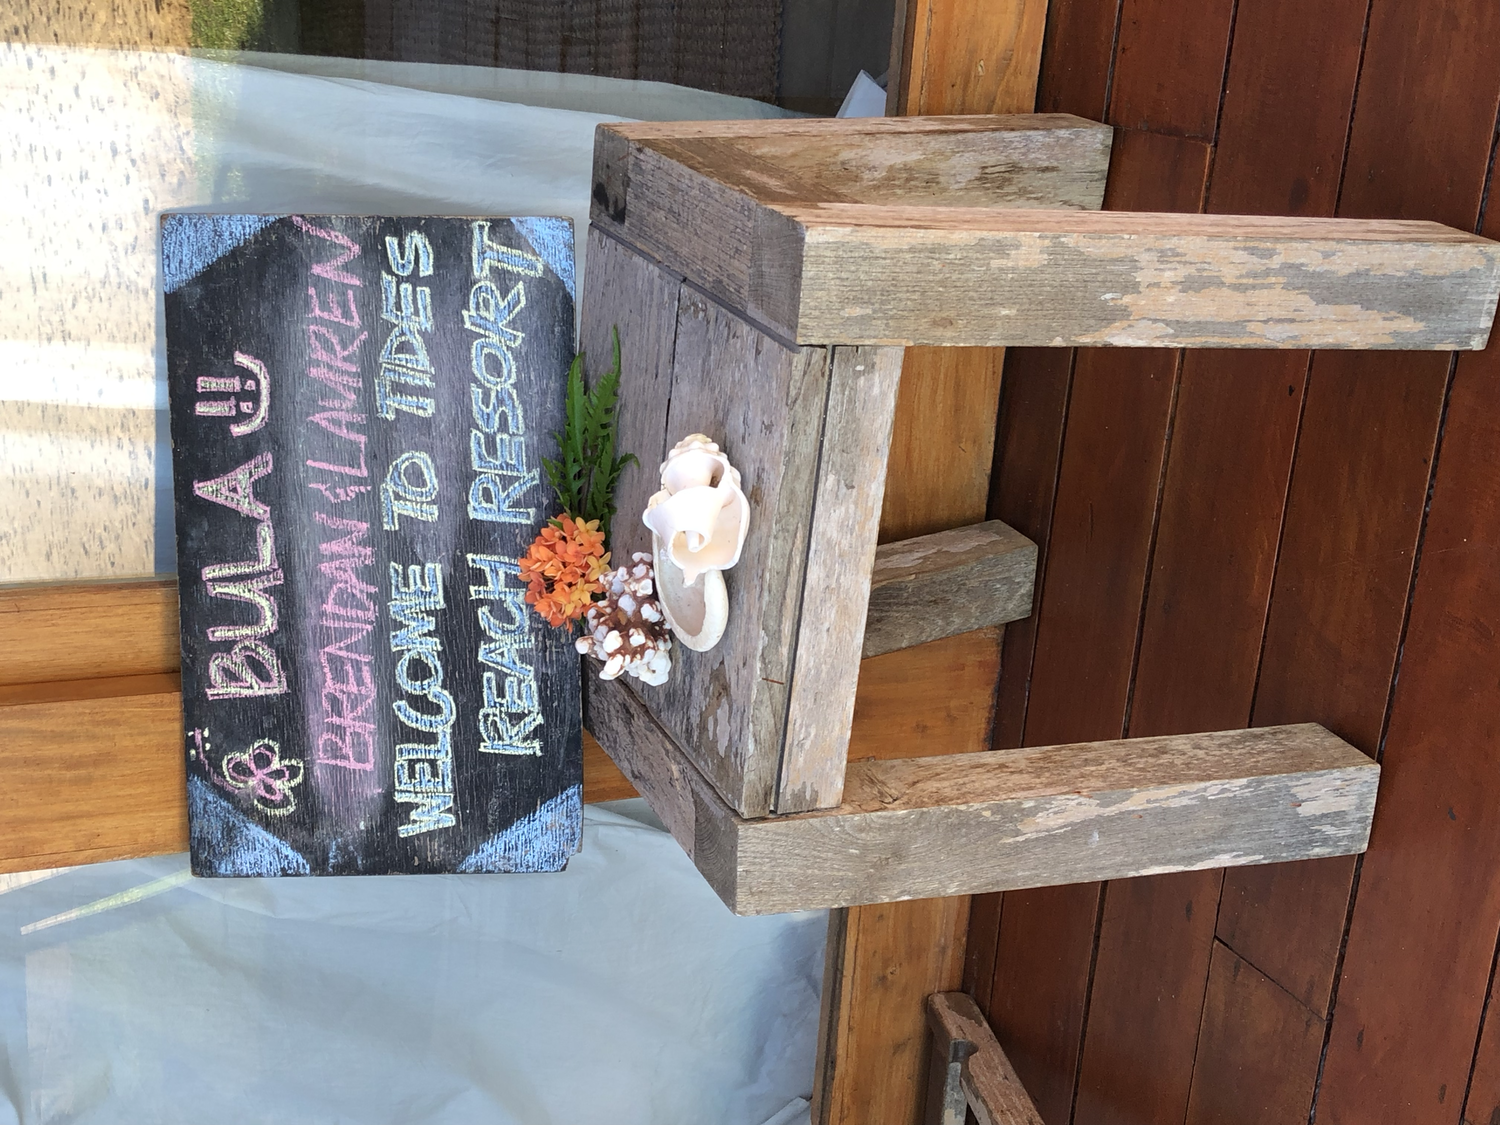 BULA
BRENDAN & LAUREN
WELCOME TO TIDES
REACH RESORT